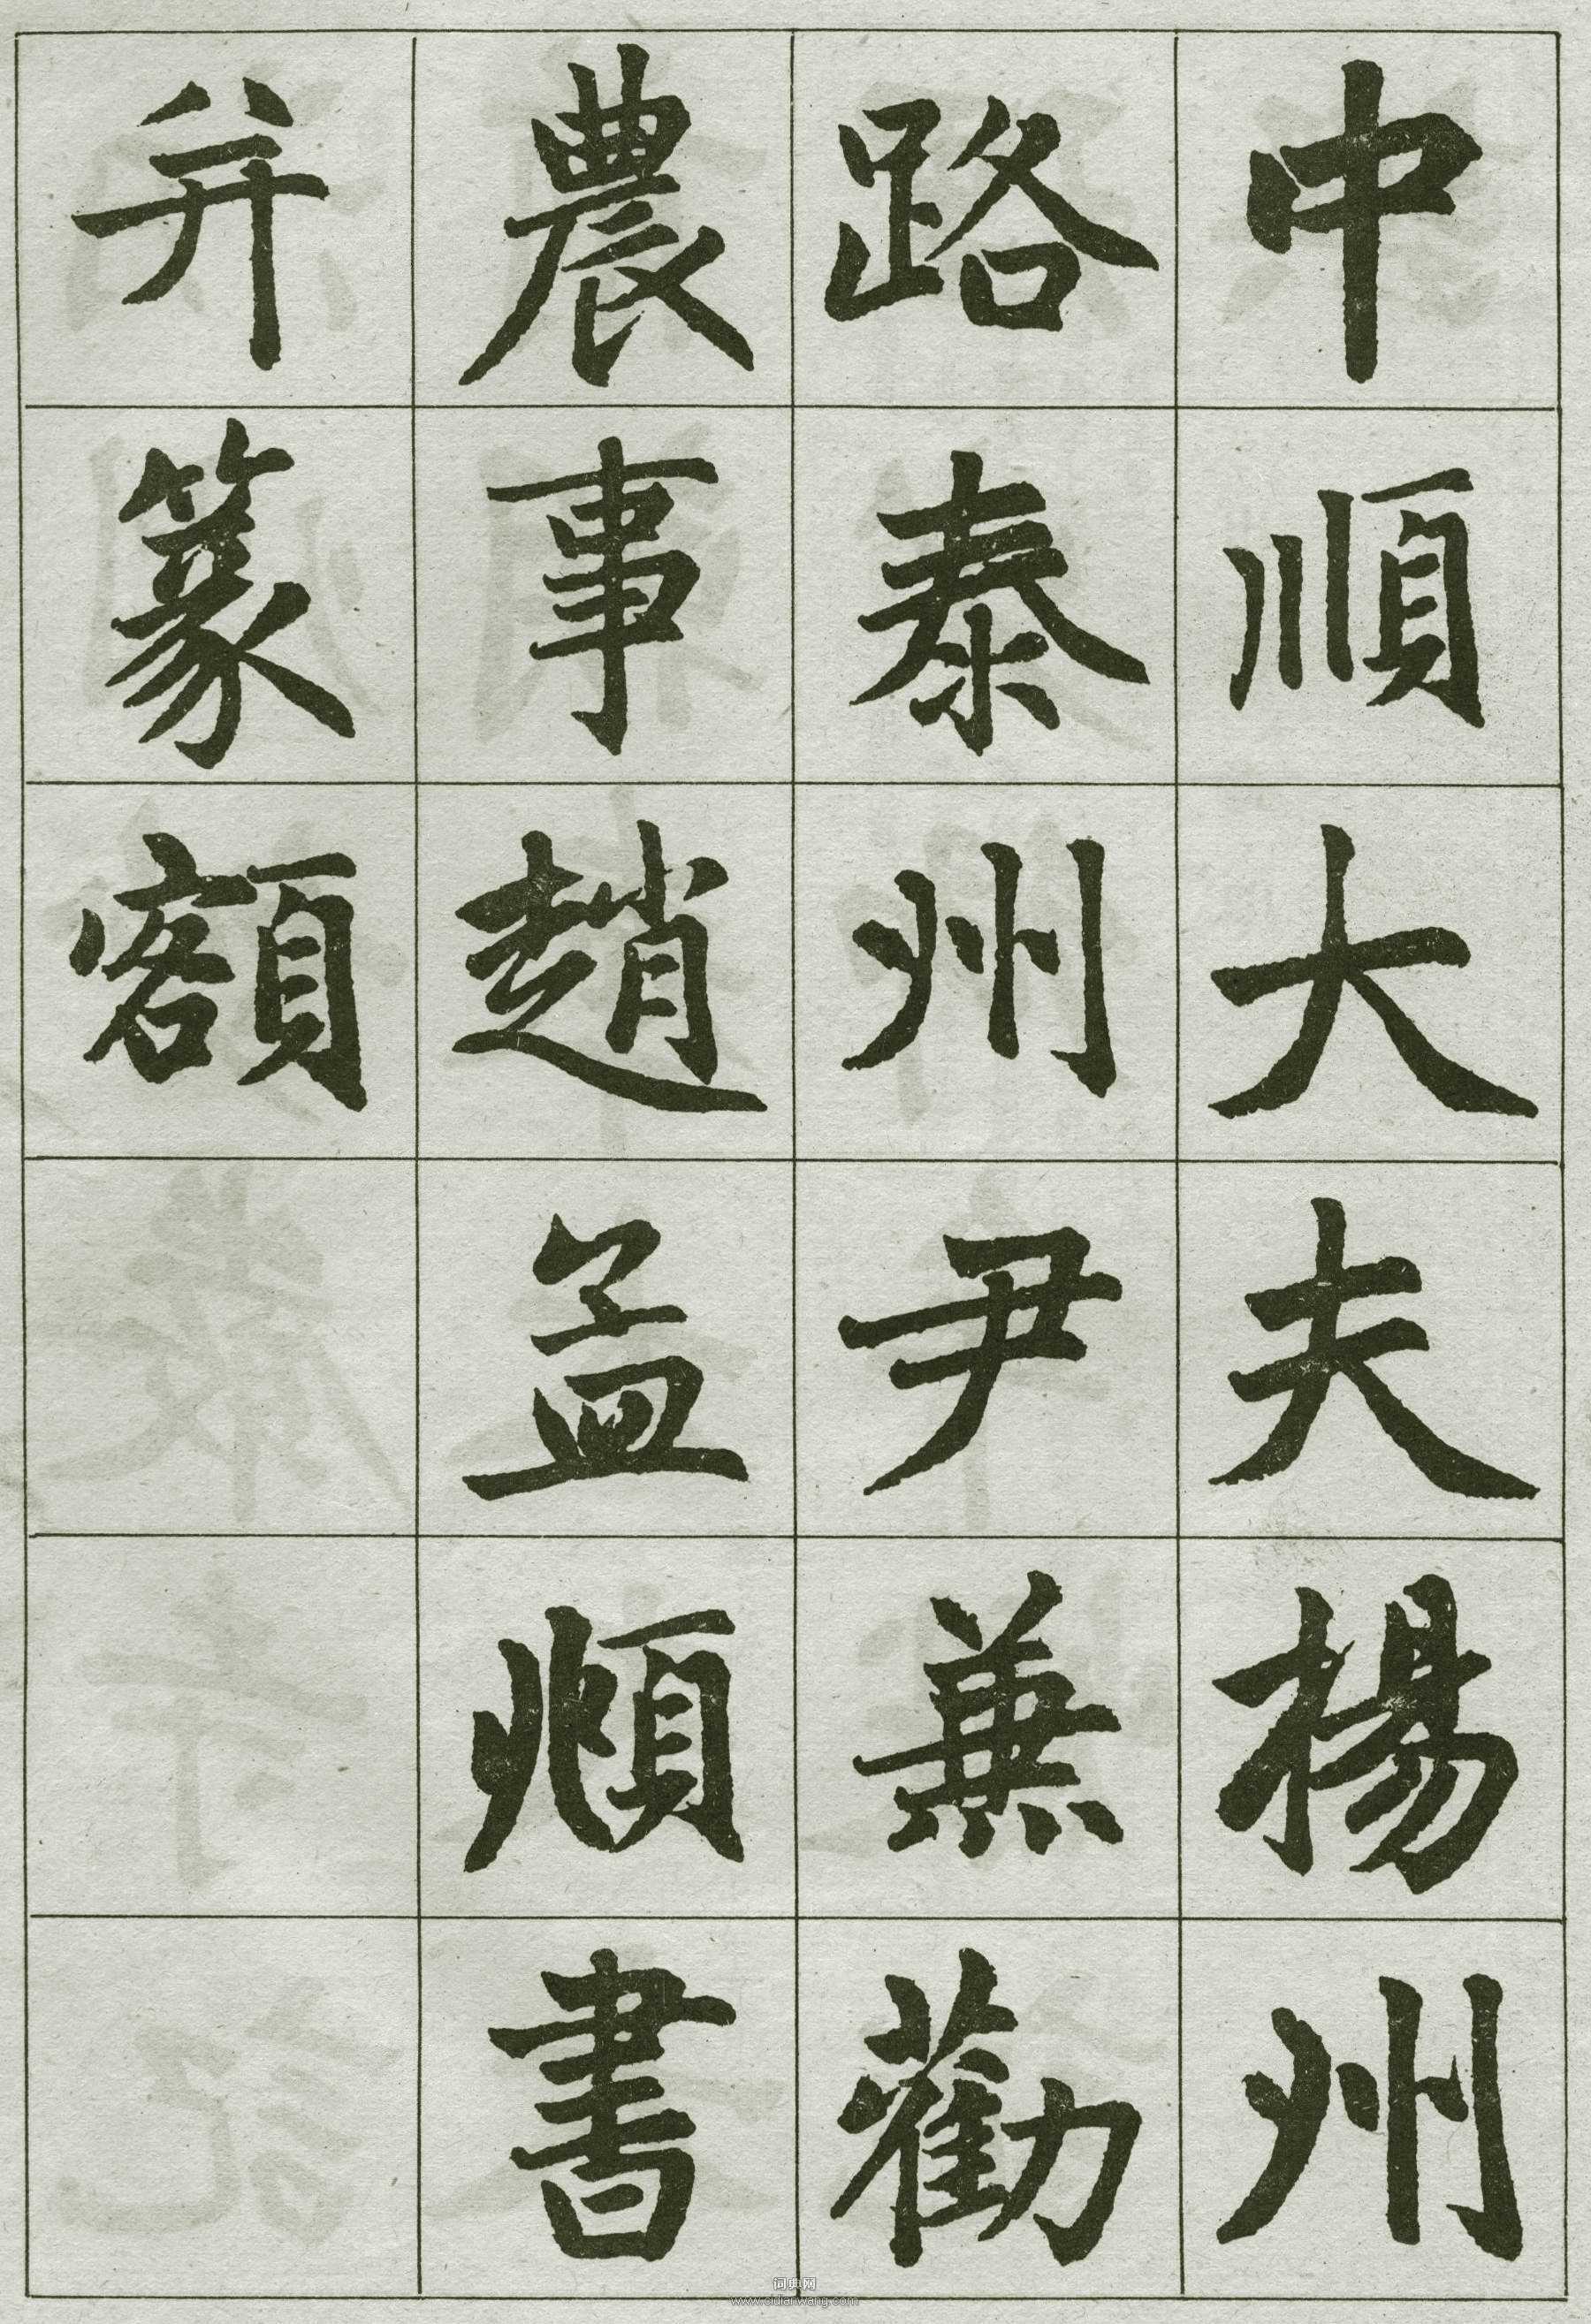 中順大夫楊州
路泰州尹蒹勸
農事趙孟頫書
并篆額
词典网
www.cidianwang.com